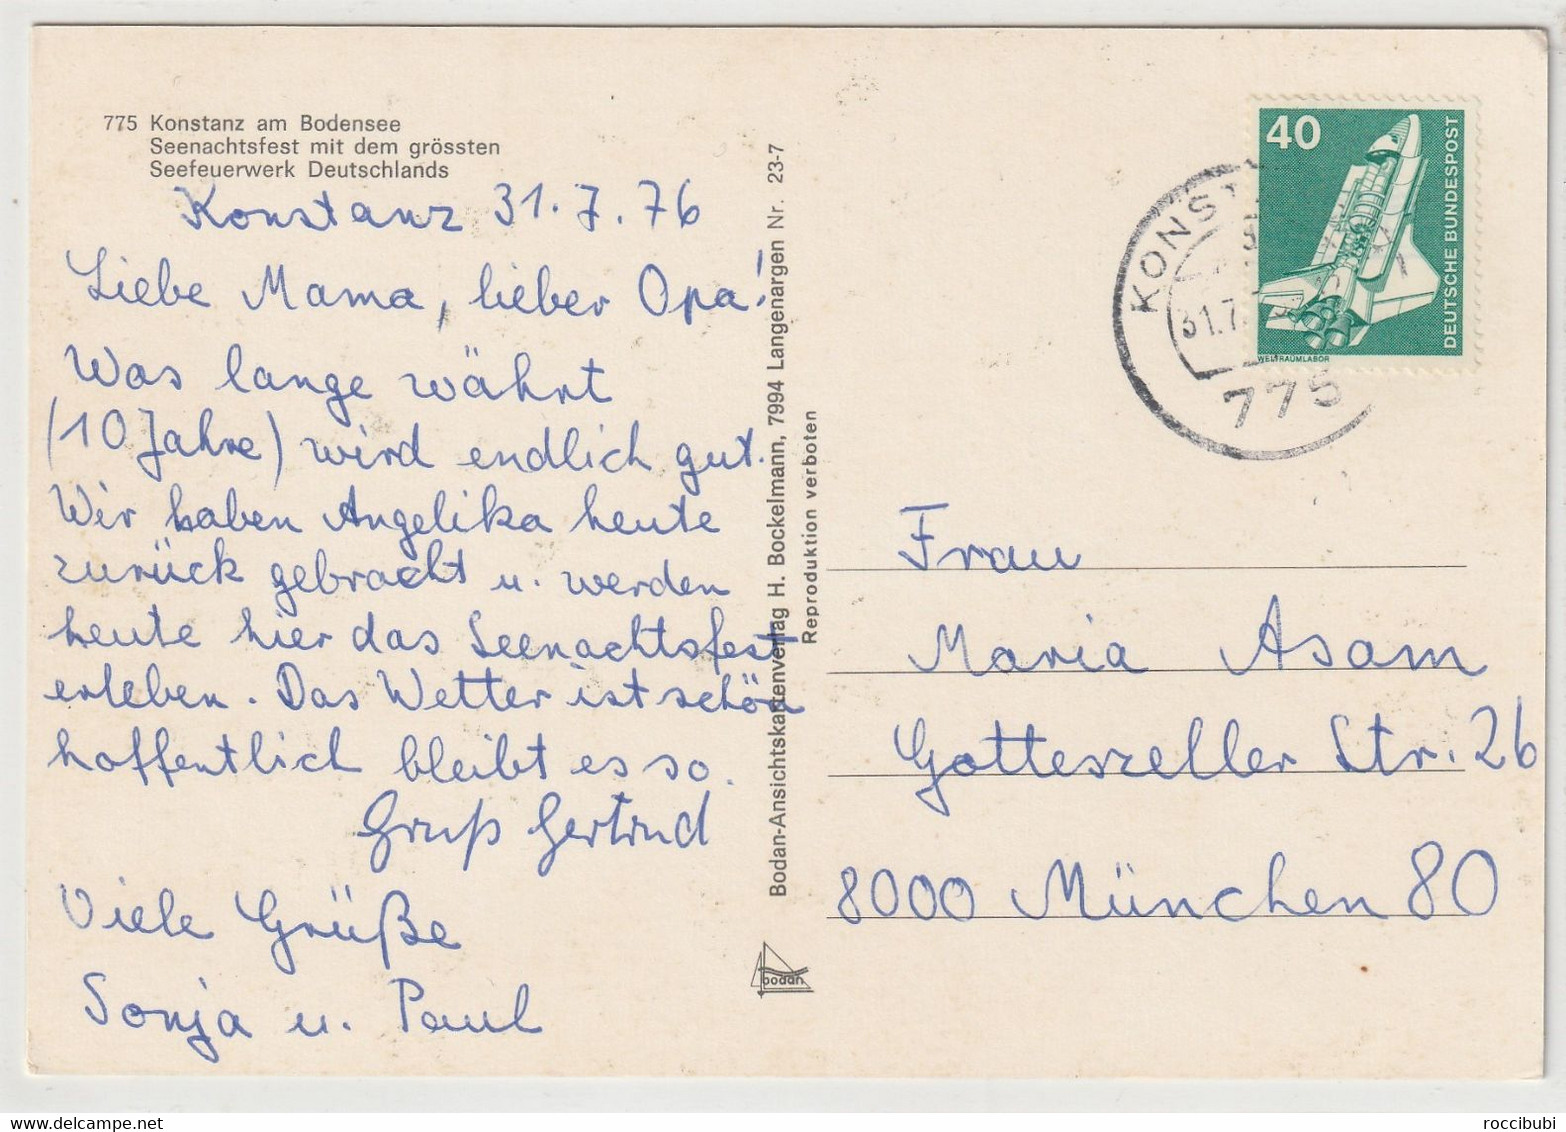 775 Konstanz am Bodensee
Seenachtsfest mit dem grössten
Seefeuerwerk Deutschlands
Konstanz 31.7.76
Liebe Mama, lieber Opa!
Was lange währt
(10 Jahre) wird endlich gut.
Wir haben Angelika heute
zurück gebracht u. werden
heute hier das Seenachtsfest
erleben. Das Wetter ist schön
hoffentlich bleibt es so.
Gruß Gertrud
Viele Grüße
Sonja u. Paul
Bodan-Ansichtskartenverlag H. Bockelmann, 7994 Langenargen Nr. 23-7
Reproduktion verboten
bodan
40
DEUTSCHE BUNDESPOST
WELTRAUMLABOR
KONST
31.7.
775
Frau
Maria Asam
Gotteszeller Str. 26
8000 München 80
roccibubi